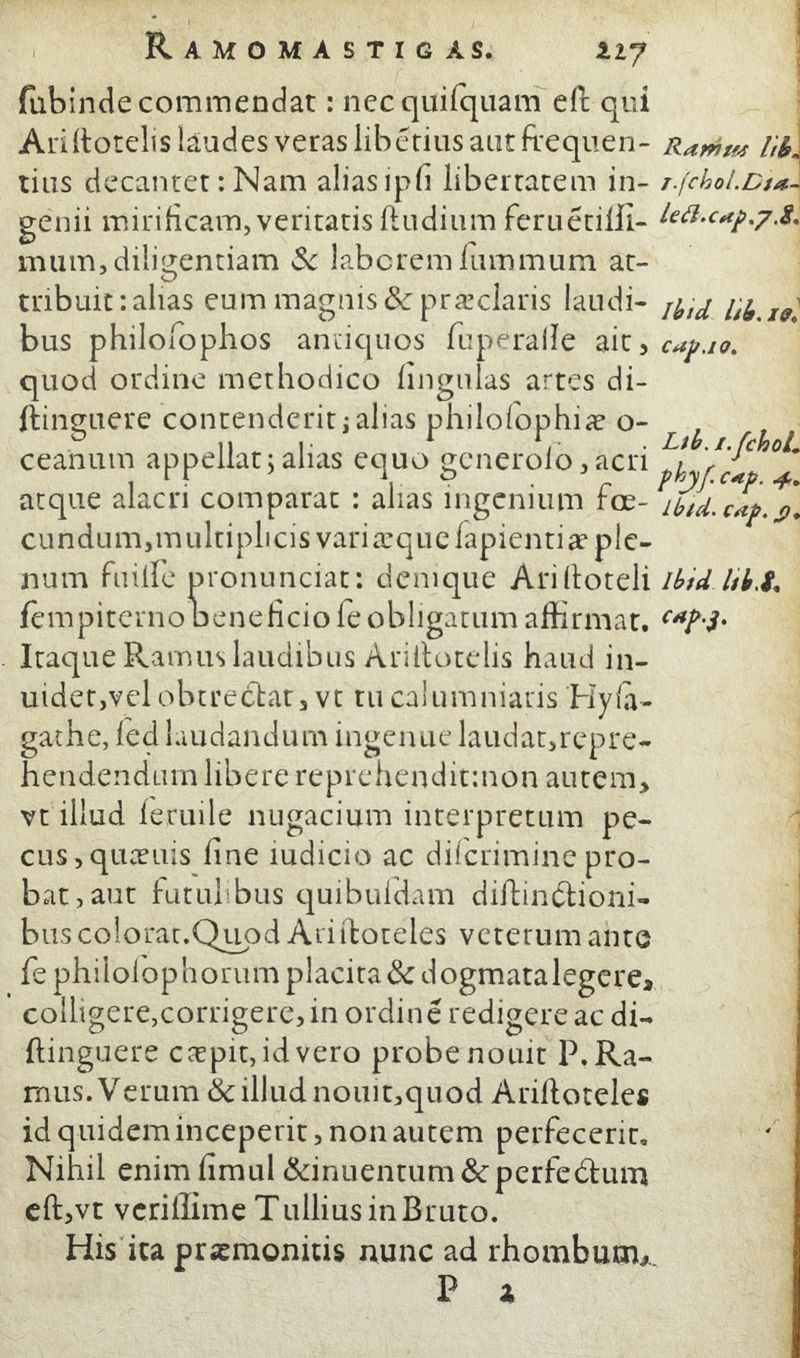 RAMOMASTIGAS. 227
ſubinde commendat : nec quiſquam eſt qui
Ariſtotelis laudes veras libérius aut frequen-
tius decantet : Nam alias ipſi libertatem in-
genii mirificam, veritatis ſtudium feruétiſſi-
mum, diligentiam & laborem ſummum at-
tribuit : alias eum magnis & præclaris laudi-
bus philoſophos antiquos ſuperaſſe ait,
quod ordine methodico ſingulas artes di-
ſtinguere contenderit; alias philoſophiæ o-
ceanum appellat; alias equo generoſo, acri
atque alacri comparat : alias ingenium fœ-
cundum, multiplicis variæque ſapientiæ ple-
num fuiſſe pronunciat: denique Ariſtoteli
ſempiterno beneficio ſe obligatum affirmat.
Itaque Ramus laudibus Ariſtotelis haud in-
uidet, vel obtrectat, vt tu calumniaris Hyſa-
gathe, ſed laudandum ingenue laudat, repre-
hendendum libere reprehendit: non autem,
vt illud ſeruile nugacium interpretum pe-
cus, quæuis ſine iudicio ac diſcrimine pro-
bat, aut futulibus quibuſdam diſtinctioni-
bus colorat. Quod Ariſtoteles veterum ante
ſe philoſophorum placita & dogmata legere,
colligere, corrigere, in ordiné redigere ac di-
ſtinguere cæpit, id vero probe nouit P. Ra-
mus. Verum & illud nouit, quod Ariſtoteles
id quidem inceperit, non autem perfecerit.
Nihil enim ſimul & inuentum & perfectum
eſt, vt veriſſime Tullius in Bruto.
His ita præmonitis nunc ad rhombum,
P 2
Ramus lib.
1.ſchol.Dia-
lect.cap.7.8.
Ibid lib. 10.
cap.10.
Lib. 1. ſchol.
phyſ. cap. 4.
ibid. cap. 9.
Ibid lib.8.
cap.3.